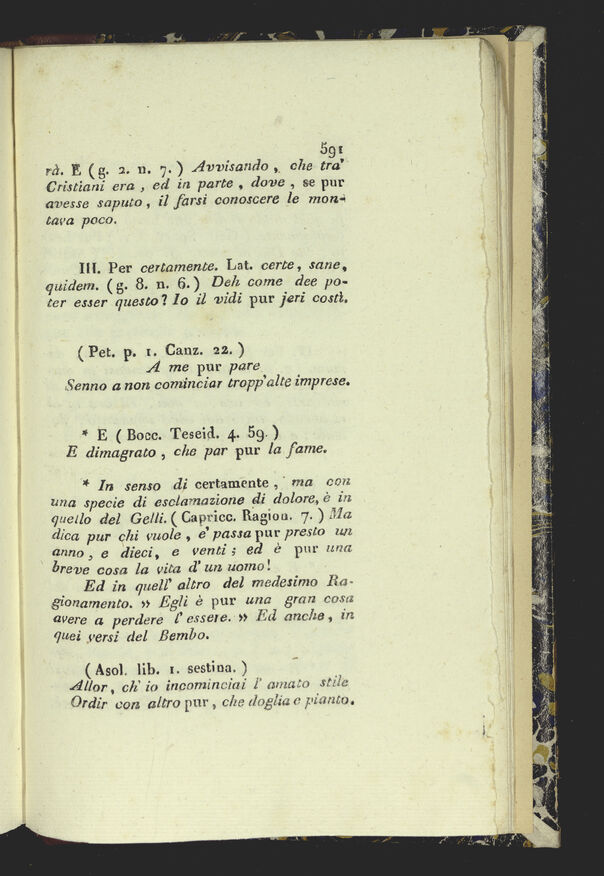 591
rà. E (g. 2. n. 7.) Avvisando, che tra'
Cristiani era, ed in parte, dove, se pur
avesse saputo, il farsi conoscere le mon-
tava poco.
III. Per certamente. Lat. certe, sane,
quidem. (g. 8. n. 6.) Deh come dee po-
ter esser questo? Io il vidi pur jeri costì.
(Pet. p. 1. Canz. 22.)
A me pur pare
Senno a non cominciar tropp'alte imprese.
* E (Bocc. Teseid. 4. 59.)
E dimagrato, che par pur la fame.
* In senso di certamente, ma con
una specie di esclamazione di dolore, è in
quello del Gelli. (Capricc. Ragion. 7.) Ma
dica pur chi vuole, e' passa pur presto un
anno, e dieci, e venti; ed è pur una
breve cosa la vita d'un uomo!
Ed in quell' altro del medesimo Ra-
gionamento. » Egli è pur una gran cosa
avere a perdere l'essere. » Ed anche, in
quei versi del Bembo.
(Asol. lib. 1. sestina.)
Allor, ch' io incominciai l' amato stile
Ordir con altro pur, che doglia e pianto.